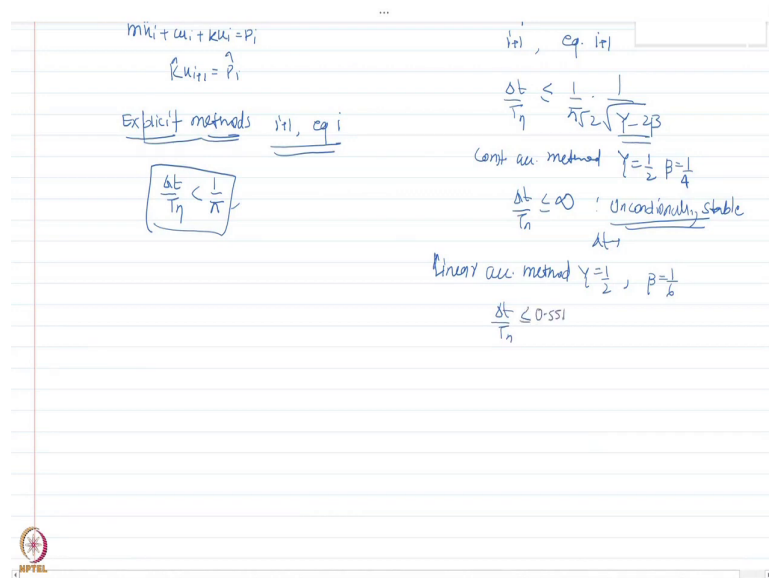 müi + cu̇i + kui = Pi
k̂ui+1 = P̂i
Explicit methods i+1, eq i
Δt/Tn < 1/π
i+1, eq. i+1
Δt/Tn ≤ 1/(π√2) · 1/√(γ-2β)
Const acc. method γ=1/2 β=1/4
Δt/Tn ≤ ∞ : Uncondionally stable
Δt→
Linear acc. method γ=1/2, β=1/6
Δt/Tn ≤ 0.551
NPTEL